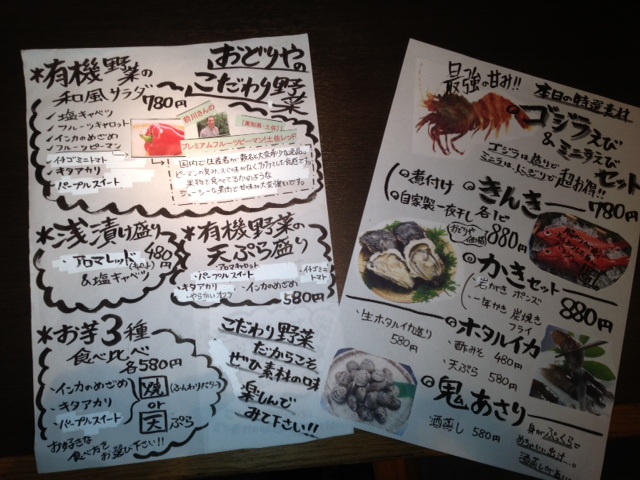 おどりやの
こだわり野菜
*有機野菜の
和風サラダ 780円
塩キャベツ
フルーツキャロット
インカのめざめ
フルーツピーマン
イチゴミニトマト
キタアカリ
パープルスイート
前川さんの
プレミアムフルーツピーマン!土佐レッド
*浅漬け盛り
アロマレッド
&塩キャベツ
480円
*有機野菜の
天ぷら盛り
・アロマキャロット
・パープルスイート
・イチゴミニトマト
・キタアカリ
・インカのめざめ
・やらかいオクラ
580円
*お芋3種
食べ比べ
各580円
・インカのめざめ
・キタアカリ
・パープルスイート
煉(ふんわりバター)
or
天ぷら
お好きな
食べ方で
お選び下さい!!
こだわり野菜
だからこそ
ぜひ素材の味
楽しんで
みて下さい!!
本日の特選素材
最強の甘み!!
ゴジラえび
&ミニラえび
セット
ゴジラは造りで
ミニラはにぎりで
超お得!!
780円
きんき
・煮付け
・自家製一夜干し
各1匹
880円
かきセット
・岩がき ポンズ
・一年かき 炭焼き
フライ
880円
ホタルイカ
・生ホタルイカ造り
580円
・酢みそ 480円
・天ぷら 580円
鬼あさり
酒蒸し 580円
身がふっくらで